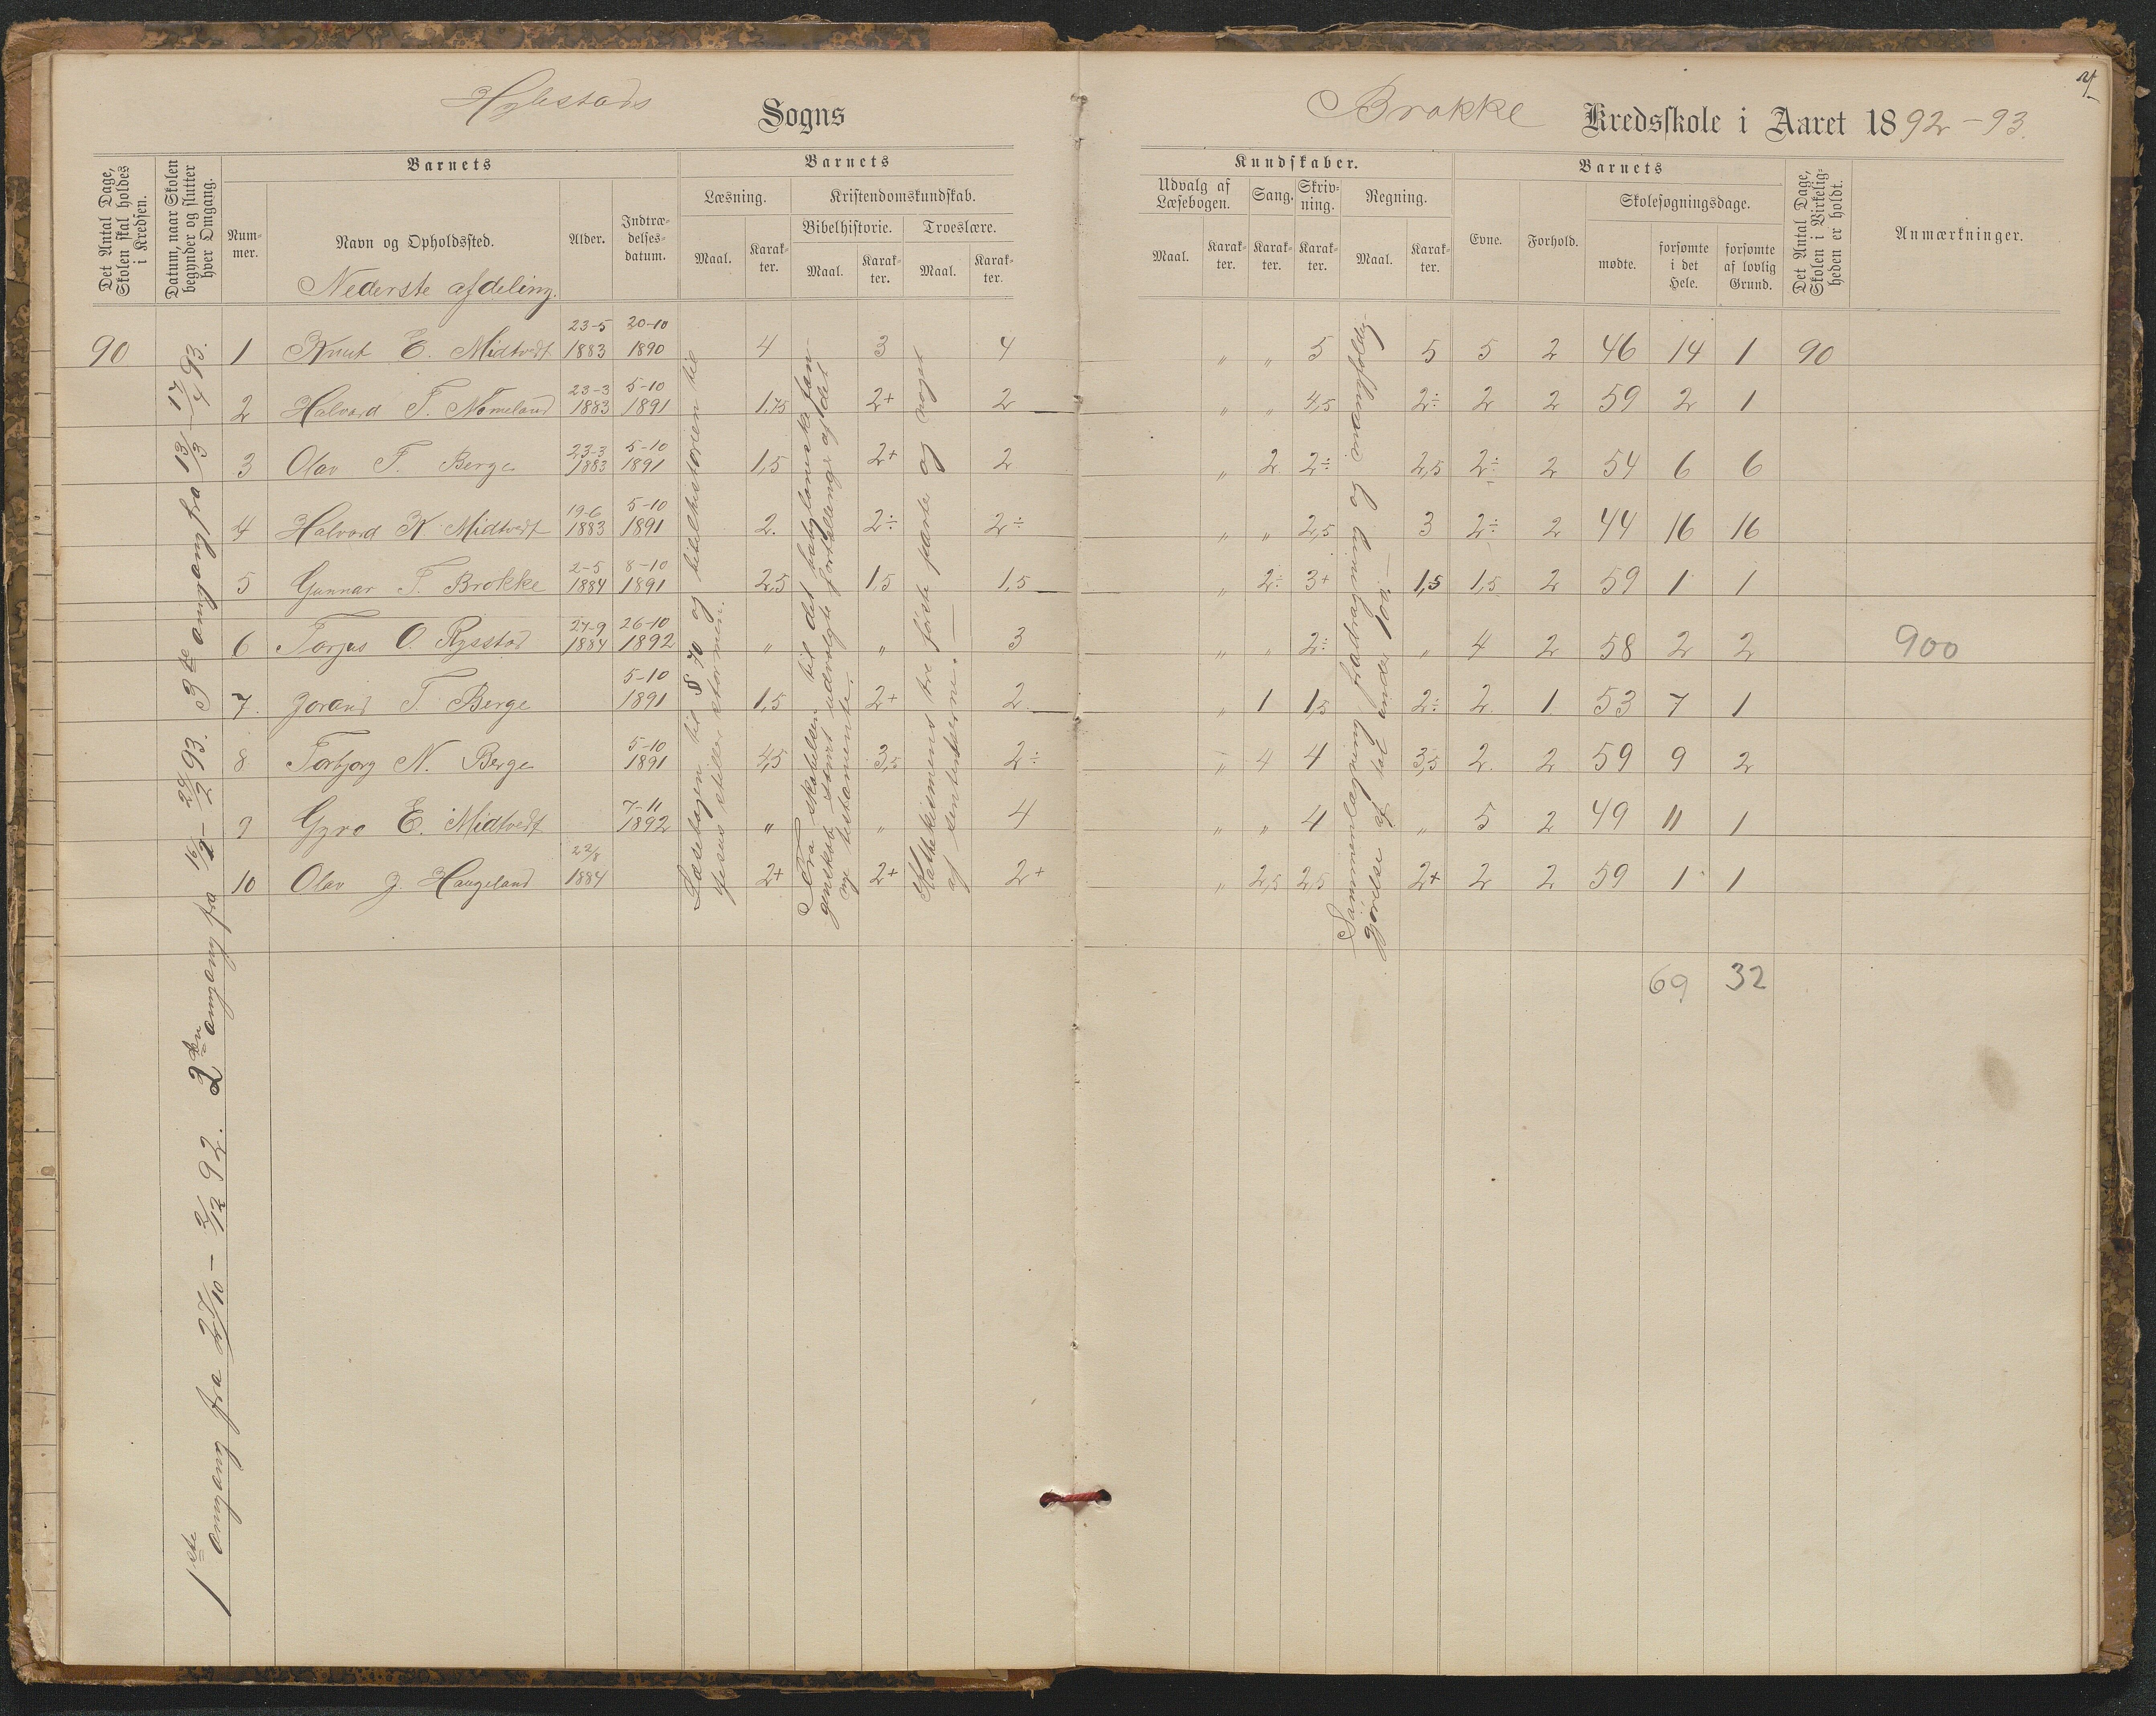 Hylestads Sogns
Brokke Kredsskole i Aaret 1892-93.
Det Antal Dage, Skolen skal holdes i Kredsen.
Datum, naar Skolen begynder og slutter hver Omgang.
Barnets
Nummer.
Navn og Opholdssted.
Nederste afdeling.
Alder.
Indtrædelsesdatum.
Barnets
Læsning.
Maal. Karakter.
Kristendomskundskab.
Bibelhistorie. Troeslære.
Maal. Karakter. Maal. Karakter.
Kundskaber.
Udvalg af Læsebogen. Sang. Skrivning. Regning.
Maal. Karakter. Karakter. Karakter. Maal. Karakter.
Barnets
Evne. Forhold.
Skolesøgningsdage.
mødte. forsømte i det Hele. forsømte af lovlig Grund.
Det Antal Dage, Skolen i Virkeligheden er holdt.
Anmærkninger.
90 1 Knut E. Midtvedt 23-5 1883 20-10 1890 4 3 4 " " 5 5 5 2 46 14 1 90
2 Halvord T. Nomeland 23-3 1883 5-10 1891 1,75 2+ 2 " " 4,5 2÷ 2 2 59 2 1
3 Olav T. Berge 23-3 1883 5-10 1891 1,5 2+ 2 " 2 2÷ 2,5 2÷ 2 54 6 6
4 Halvord K. Midtvedt 19-6 1883 5-10 1891 2. 2÷ 2÷ " " 2,5 3 2÷ 2 44 16 16
5 Gunnar T. Brokke 2-5 1884 8-10 1891 2,5 1,5 1,5 " 2÷ 3+ 1,5 1,5 2 59 1 1
6 Torjus O. Rysstad 27-9 1884 26-10 1892 " " 3 " " 2÷ " 4 2 58 2 2 900
7. Jorand T. Berge 5-10 1891 1,5 2+ 2 " 1 1,5 2÷ 2 1 53 7 1
8 Torbjorg N. Berge 5-10 1891 4,5 3,5 2÷ " 4 4 3,5 2 2 59 9 2
9 Gyro E. Midtvedt 7-11 1892 " " 4 " " 4 " 5 2 49 11 1
10 Olav J. Haugeland 22/8 1884 2+ 2+ 2+ " 2,5 2,5 2+ 2 2 59 1 1
69 32
1ste omgang fra 27/10 - 2/12 92. 2den omgang fra 16/1 - 24/2 93. 3de omgang fra 13/3 - 17/4 93.
Læsebogen til § 70 og bibelhistorien til
Jesus stiller stormen.
Fra skabelsen til det babyloniske fan-
genskab samt udvalgte fortellinger af det
nye testamente.
Kathekismens tre første parter og noget
af sentenserne.
Sammenlægning, fradragning og mangfoldig-
gjørelse af tal under 100.